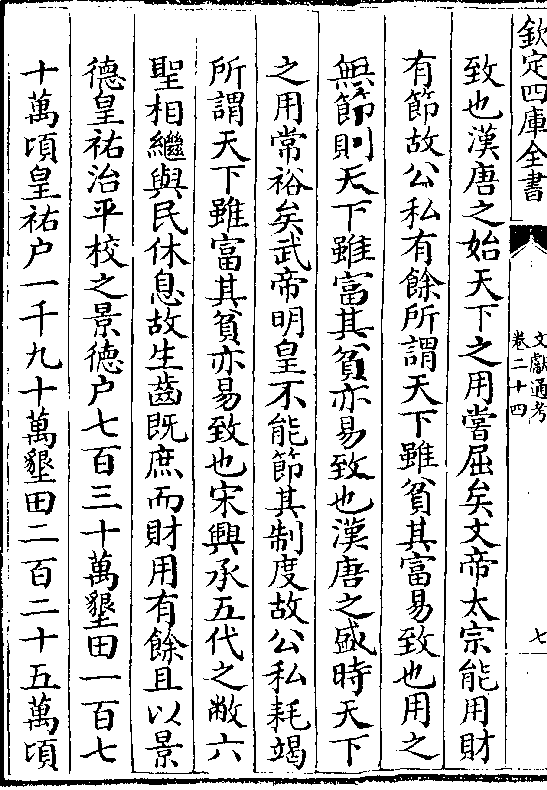 欽定四庫全書
文獻通考
卷二十四
七
致也漢唐之始天下之用嘗屈矣文帝太宗能用財
有節故公私有餘所謂天下雖貧其富易致也用之
無節則天下雖富其貧亦易致也漢唐之盛時天下
之用常裕矣武帝明皇不能節其制度故公私耗竭
所謂天下雖富其貧亦易致也宋興承五代之敝六
聖相繼與民休息故生齒既庶而財用有餘且以景
德皇祐治平校之景德户七百三十萬墾田一百七
十萬頃皇祐户一千九十萬墾田二百二十五萬頃